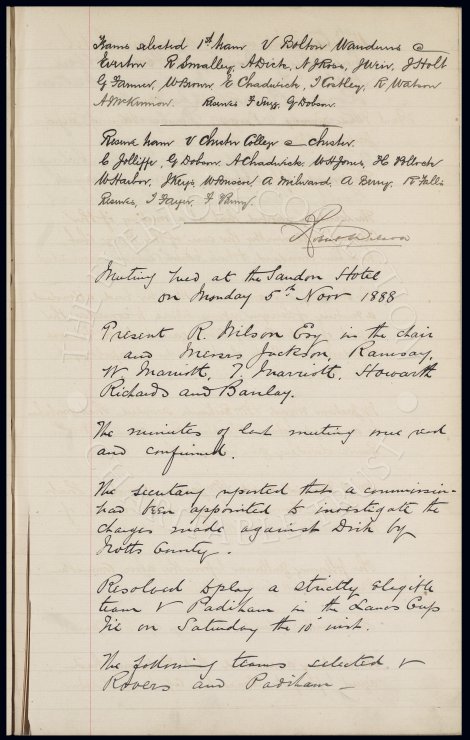 Teams selected 1st team V Bolton Wanderers @
Everton R Smalley, A Dick, N J Ross, J Weir, J Holt
G Farmer, W Brown, E Chadwick, J Costley, R Watson
A McKinnon. Reserves F Sugg, G Dobson.
Reserve team V Chester College @ Chester.
C Jolliffe, G Dobson, A Chadwick, W H Jones, H Pollock
W Harbor, J Keys, W Benson A Milward, A Berry, R Falls
Reserves, J Fayer, F Parry.
Robert Wilson
Meeting held at the Sandon Hotel
on Monday 5th Novr 1888
Present R. Wilson Esq in the chair
and Messrs Jackson, Ramsay,
W Marriott, T Marriott, Howarth
Richards and Barclay.
The minutes of last meeting were read
and confirmed.
The secretary reported that a commission
had been appointed to investigate the
charges made against Dick by
Notts County.
Resolved to play a strictly elegible
team V Padiham in the Lancs Cup
Tie on Saturday the 10th inst.
The following teams selected v
Rovers and Padiham —